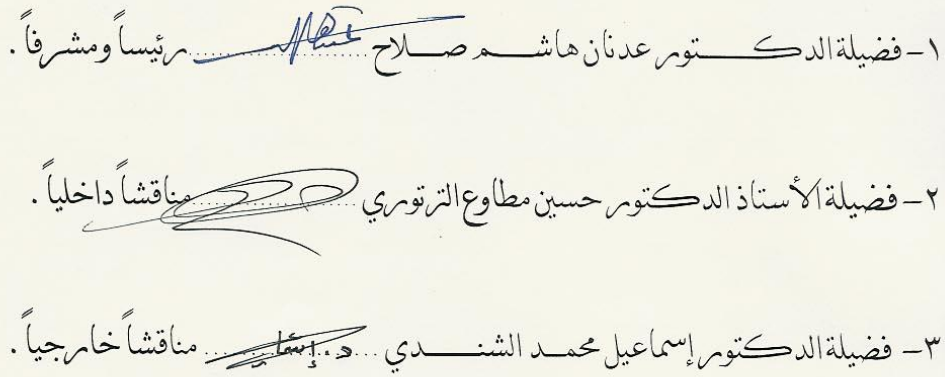 ١- فضيلة الدكتور عدنان هاشم صلاح ........ رئيساً ومشرفاً .
٢- فضيلة الأستاذ الدكتور حسين مطاوع الترتوري ........ مناقشاً داخلياً .
٣- فضيلة الدكتور إسماعيل محمد الشندي ........ مناقشاً خارجياً .